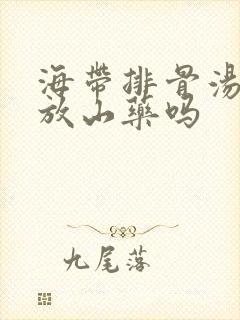 海帶排骨湯
放山藥嗎
九尾落